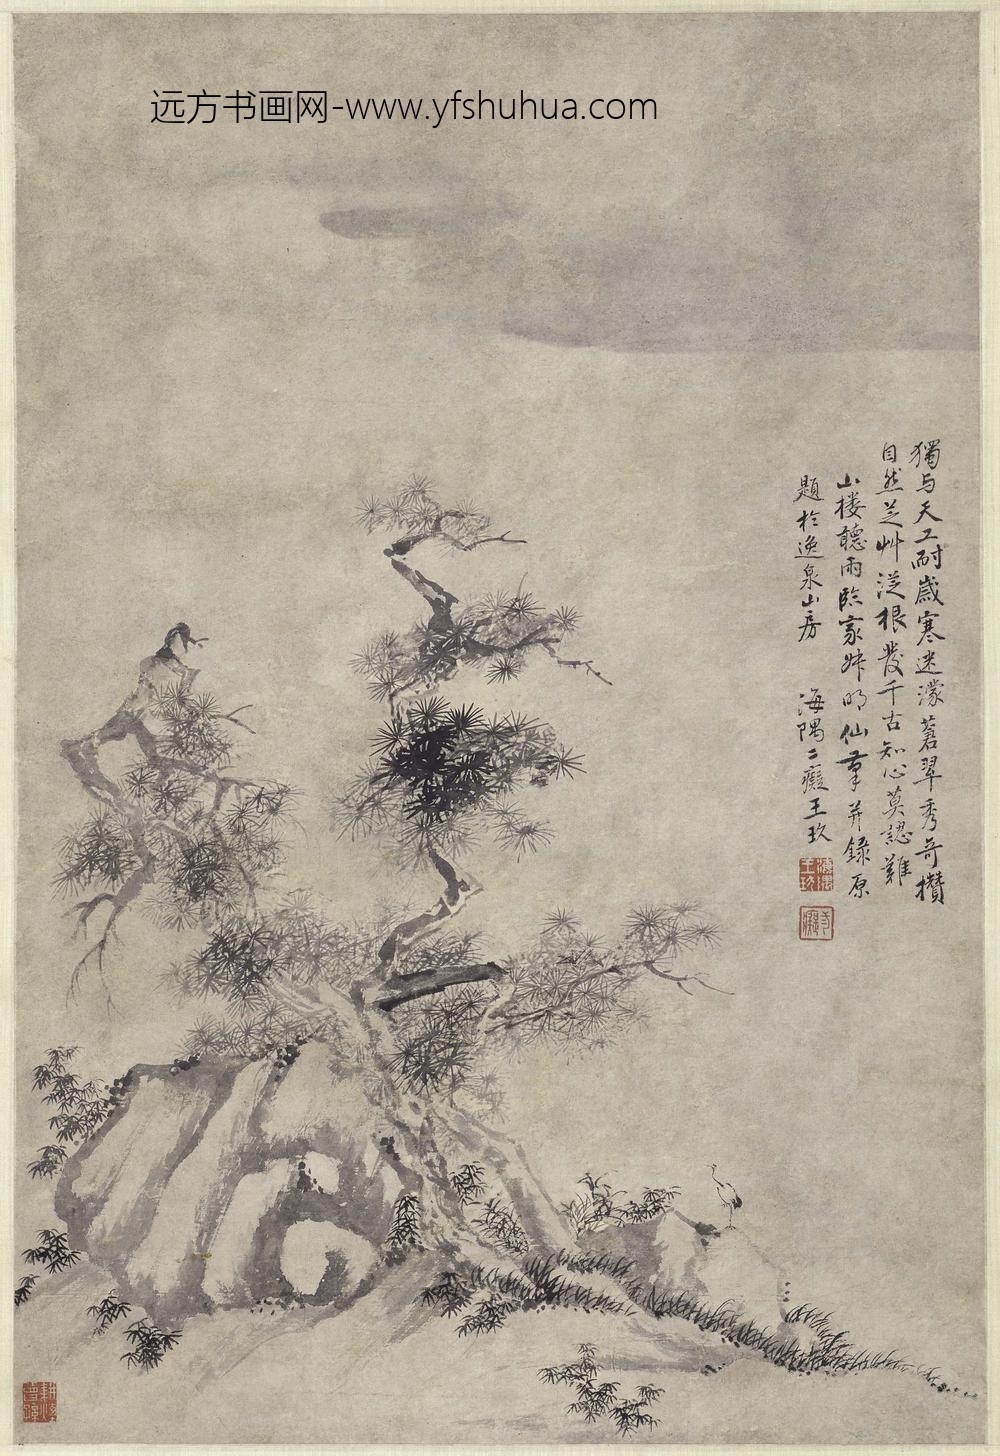 远方书画网-www.yfshuhua.com
獨与天工耐嵗寒迷濛蒼翠秀奇攢
自然芝艸從根發千古知心莫認難
山楼聽雨臨家妹明仙筆并録原
題於逸泉山房
海隅二癡王玖